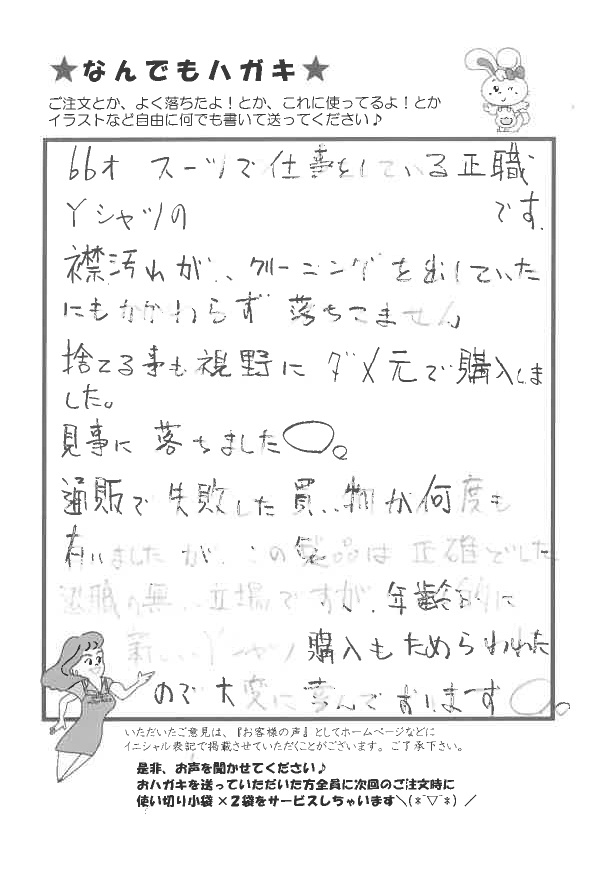 ★なんでもハガキ★
ご注文とか、よく落ちたよ！とか、これに使ってるよ！とか
イラストなど自由に何でも書いて送ってください♪
66才 スーツで仕事をしている正職
Yシャツの です.
襟汚れが、クリーニングを出していた
にもかかわらず 落ちてません」
捨てる事も視野に ダメ元で購入しま
した。
見事に 落ちました〇。
通販で 失敗した 買い物が何度も
有いましたが、この製品は 正確でした
退職の無い立場ですが、年齢的に
新しいYシャツ 購入もためらわれた
ので大変に喜んでおります〇。
いただいたご意見は、『お客様の声』としてホームページなどに
イニシャル表記で掲載させていただくことがございます。ご了承下さい。
是非、お声を聞かせてください♪
おハガキを送っていただいた方全員に次回のご注文時に
使い切り小袋×2袋をサービスしちゃいます＼(*ﾟ▽ﾟ*)／